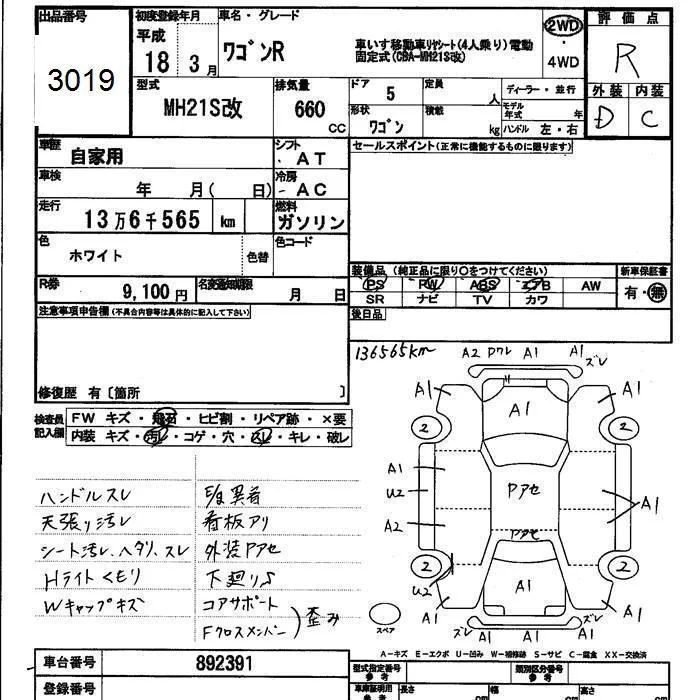 出品番号
3019
初度登録年月
平成
18 3月
車名・グレード
ワゴンR
車いす移動車リヤシート(4人乗り)電動
固定式(CBA-MH21S改)
2WD
・
4WD
評価点
R
外装 内装
D C
型式
MH21S改
排気量
660
CC
ドア
5
形状
ワゴン
定員
人
積載
kg
ディーラー・並行
モデル
年式 年
ハンドル 左・右
車歴
自家用
シフト
AT
車検
年 月( 日)
冷房
AC
走行
13万6千565 km
燃料
ガソリン
色
ホワイト
色替
色コード
R券
9,100円
名変期限
月 日
セールスポイント(正常に機能するものに限ります)
装備品 (純正品に限り○をつけてください)
PS PW ABS エアB AW
SR ナビ TV カワ
新車保証書
有・無
後日品
注意事項申告欄(不具合内容等は具体的に記入して下さい)
修復歴 有〔箇所 〕
検査員
記入欄
FW キズ・飛石・ヒビ割・リペア跡・×要
内装 キズ・汚れ・コゲ・穴・スレ・キレ・破レ
ハンドルスレ
天張り汚レ
シート汚レ、ヘタリ、スレ
Hライトくもり
Wキャップキズ
看板アリ
外装Pアセ
下廻りS
コアサポート
Fクロスメンバー
歪み
136565km
A2 Pワレ A1 A1 ズレ
A1 A1 A1
2 2
A1
U2
A2
Pアセ
A1
Pアセ
2 2
U2
A1
A1 A1
ズレ A1 A1 ズレ
スペア
A-キズ E-エクボ U-凹み W-補修跡 S-サビ C-腐食 XX-交換済
車台番号
892391
登録番号
型式指定番号
参考
類別区分番号
参考
車庫証明用
参考
長さ
cm
幅
cm
高さ
cm